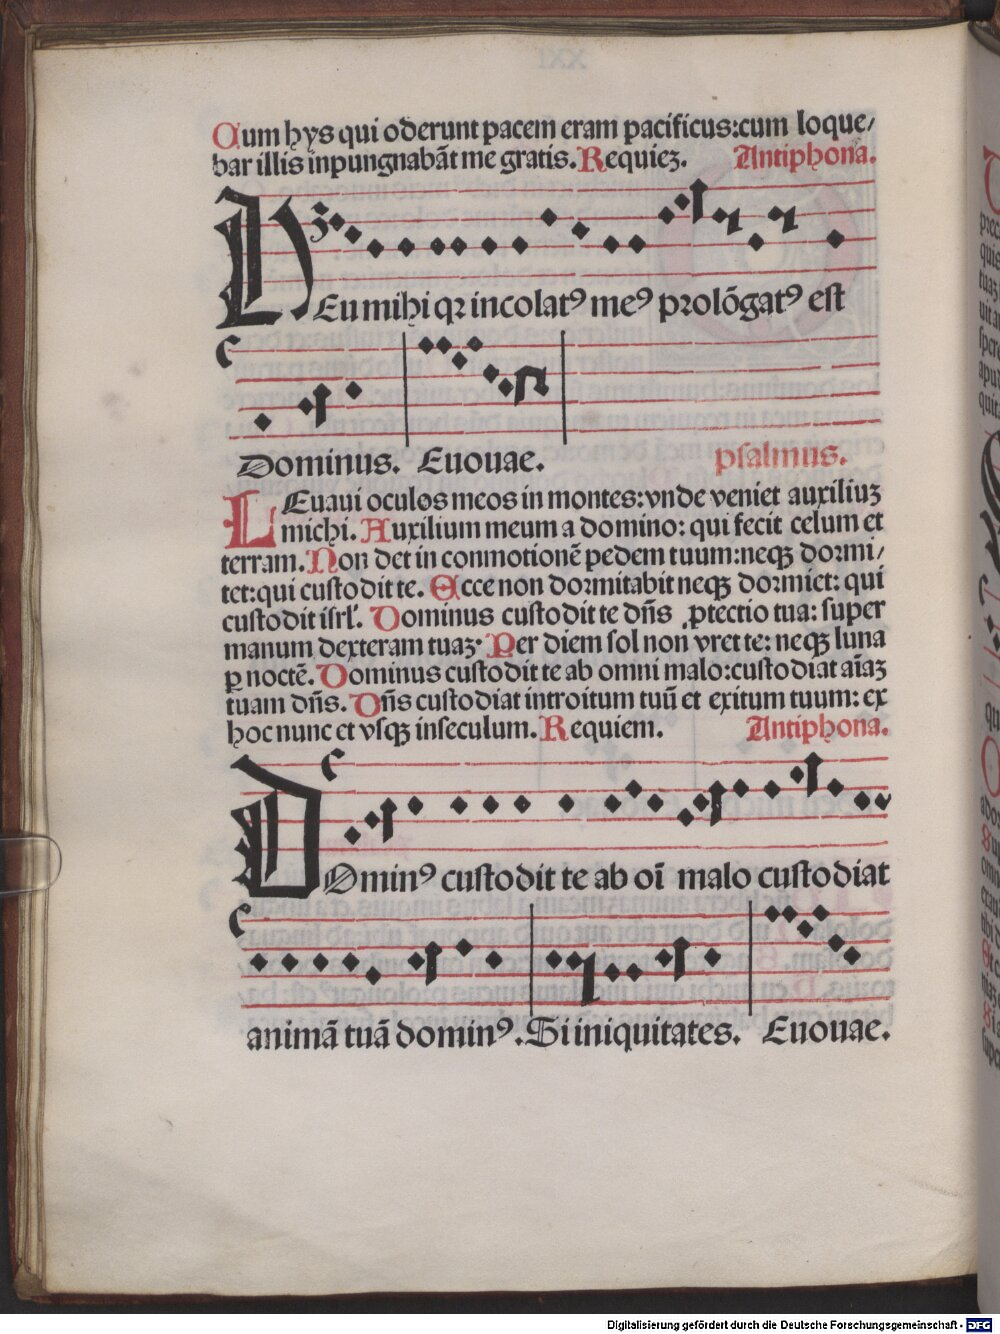 Cum hys qui oderunt pacem eram pacificus:cum loque/
bar illis inpungnabāt me gratis. Requiez. Antiphona.
HEu mihi qꝛ incolatꝰ meꝰ prolōgatꝰ est
Dominus. Euouae. psalmus.
LEuaui oculos meos in montes: vnde veniet auxiliuz
michi. Auxilium meum a domino: qui fecit celum et
terram. Non det in conmotionē pedem tuum: neqꝫ dormi/
tet: qui custodit te. Ecce non dormitabit neqꝫ dormiet: qui
custodit isrl'. Dominus custodit te dn̄s ꝓtectio tua: super
manum dexteram tuaz. Per diem sol non vret te: neqꝫ luna
ꝑ noctē. Dominus custodit te ab omni malo: custodiat aīaz
tuam dn̄s. Dn̄s custodiat introitum tuū et exitum tuum: ex
hoc nunc et vsqꝫ inseculum. Requiem. Antiphona.
DOminꝰ custodit te ab oī malo custodiat
animā tuā dominꝰ. Si iniquitates. Euouae.
Digitalisierung gefördert durch die Deutsche Forschungsgemeinschaft - DFG